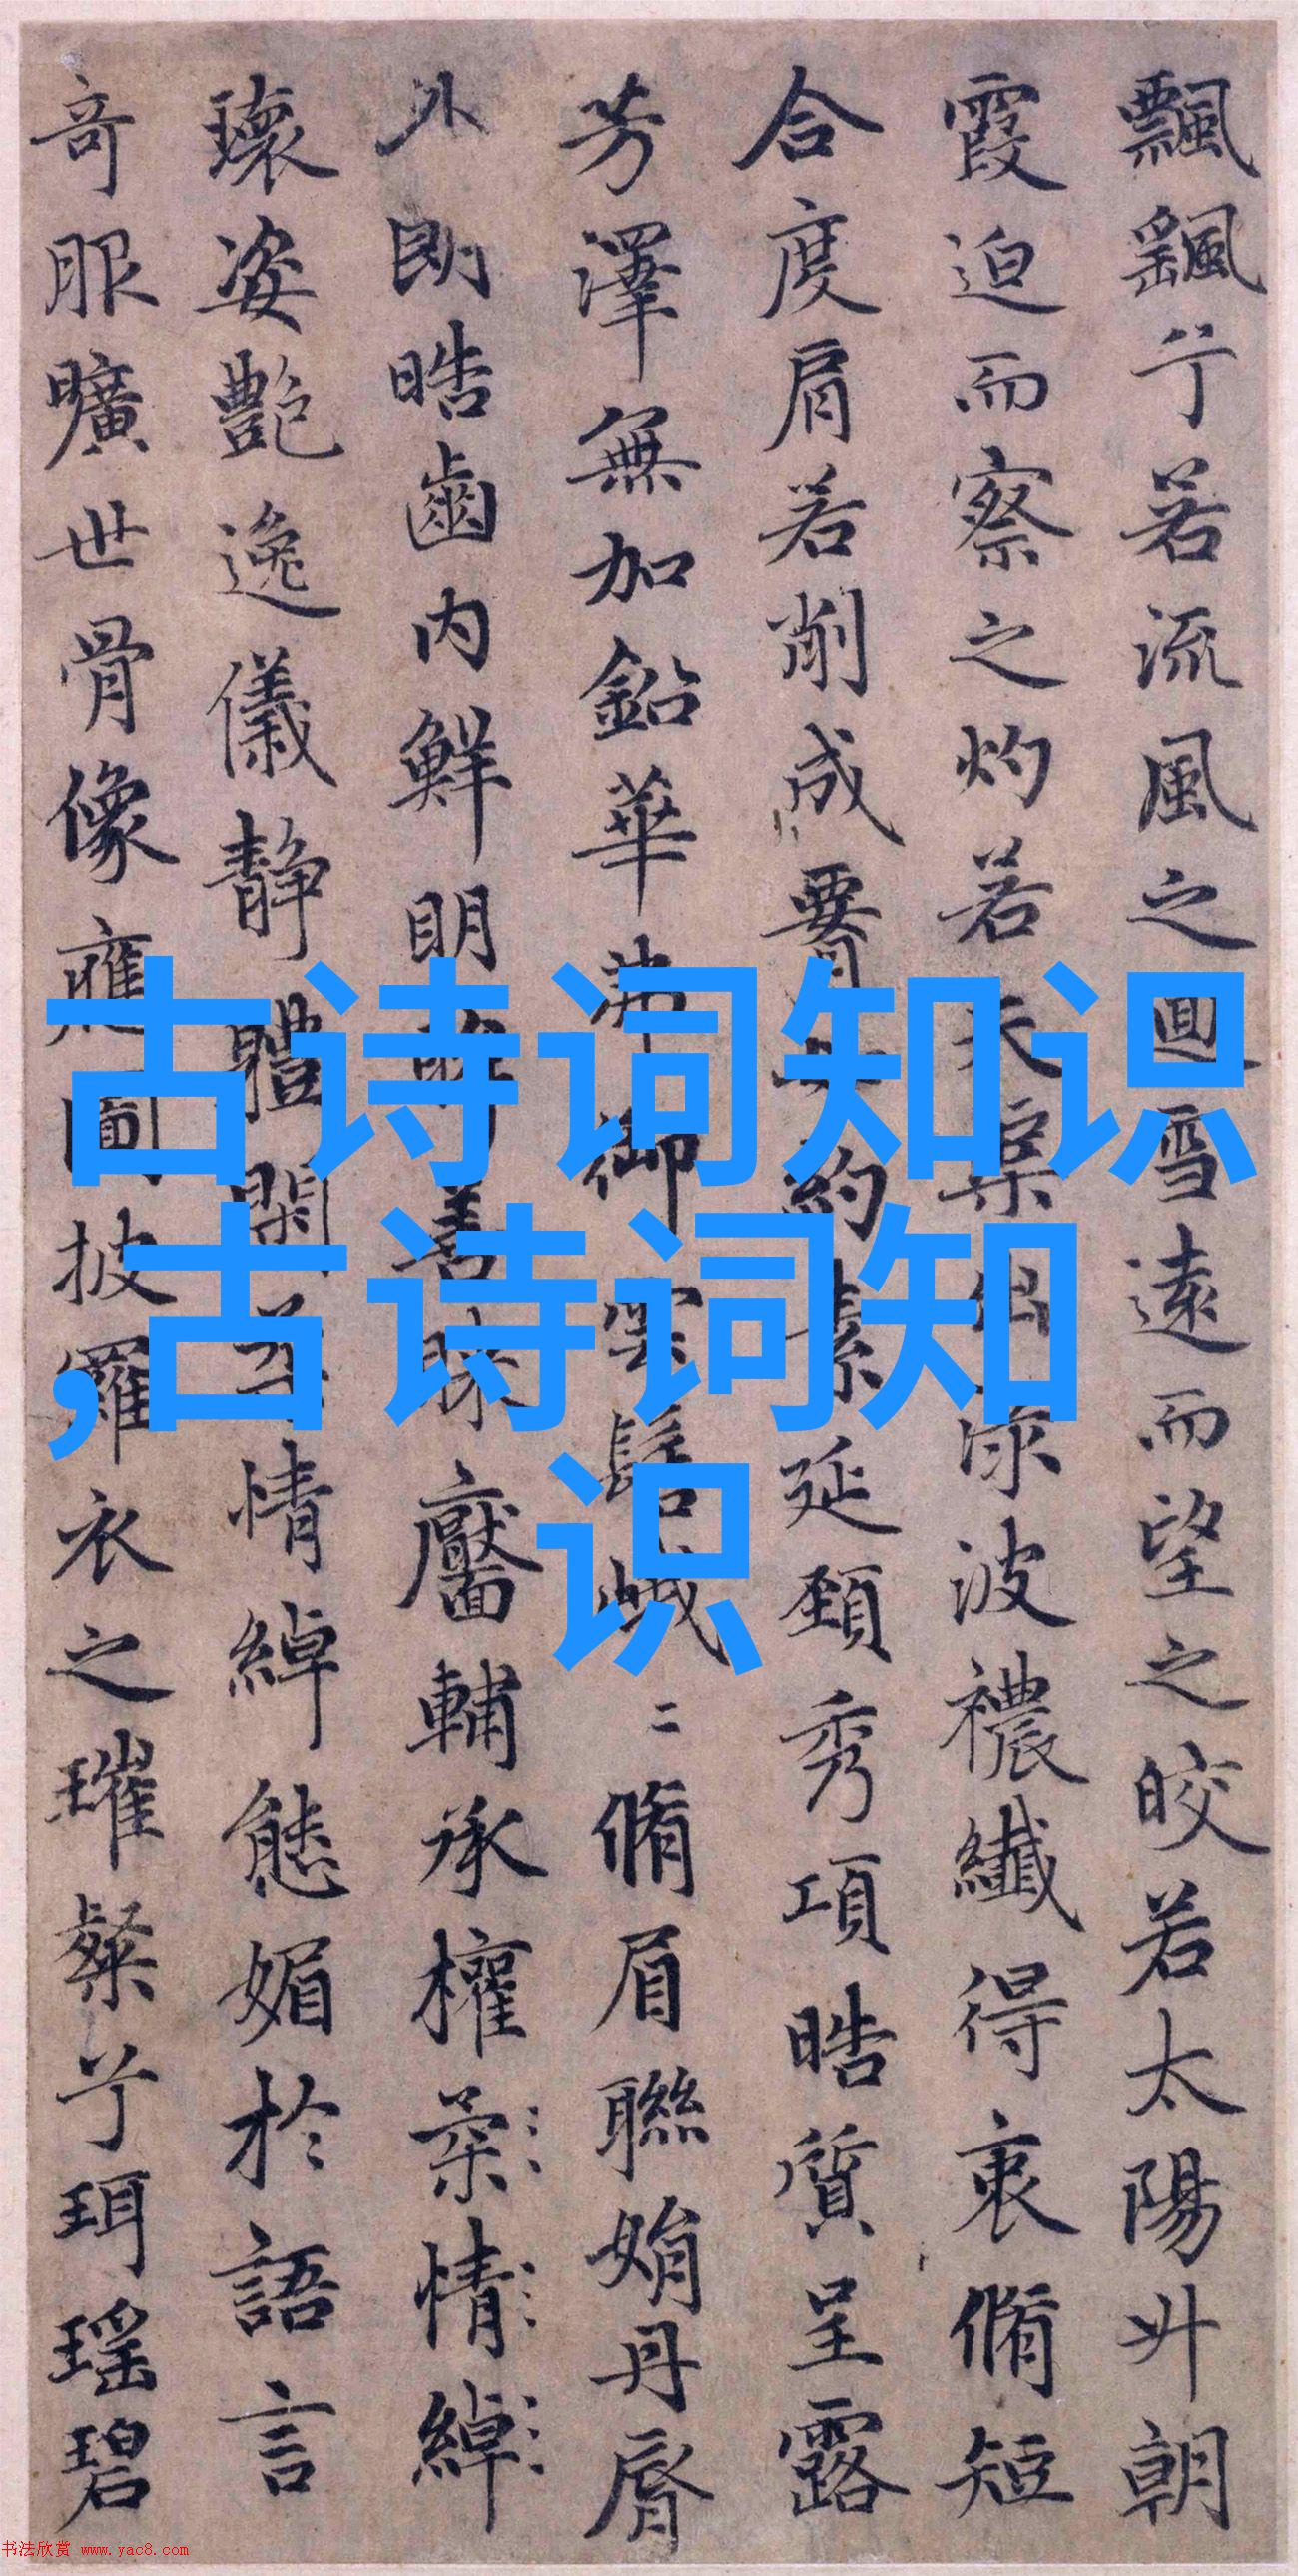 飄飖兮若流風之迴雪遠而望之皎若太陽升朝
霞迫而察之灼若夫蕖出淥波襛纖得衷脩短
合度肩若削成要如約素延頸秀項皓質呈露
芳澤無加鉛華弗御雲髻峨二脩眉聯娟丹脣
外朗皓齒内鮮明眸善睞靨輔承權柔情綽
瓌姿艷逸儀静體閑柔情綽態媚於語言
奇服曠世骨像應圖披羅衣之璀粲兮珥瑶碧
古诗词知识
,古诗词知
识
书法欣赏 www.yac8.com